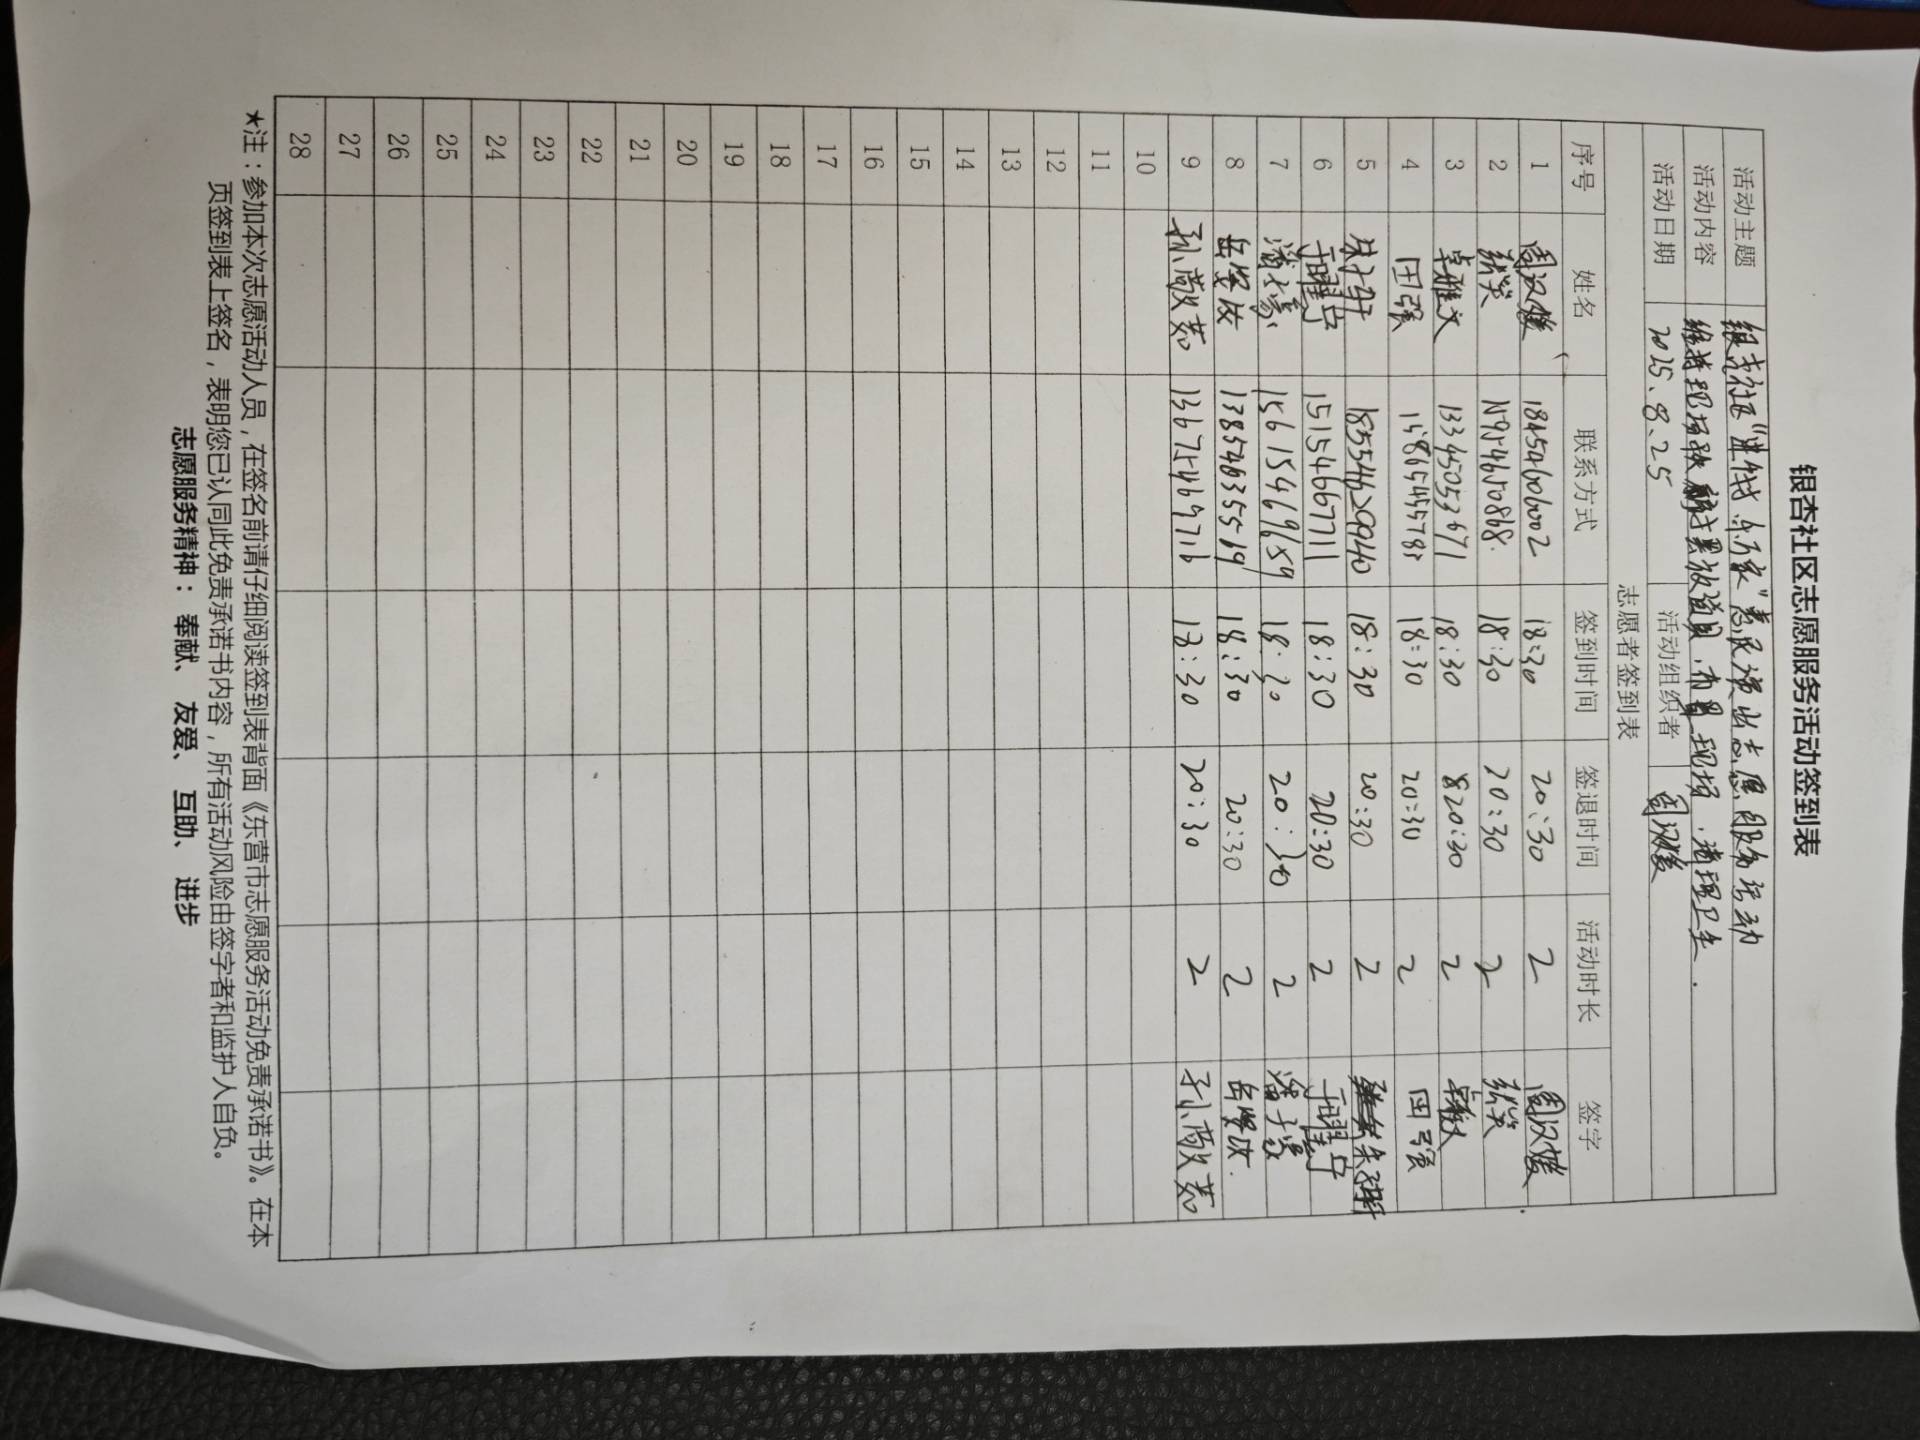 银杏社区志愿服务活动签到表
活动主题 银杏社区 惠民演出志愿服务活动
活动内容 维护现场秩序 布置现场、清理卫生.
活动日期 2025.8.25 活动组织者 周汉俊
志愿者签到表
序号 姓名 联系方式 签到时间 签退时间 活动时长 签字
1 周汉俊 18454606002 18:30 20:30 2 周汉俊
2 张笑 18:30 20:30 2 张笑
3 卓雅文 13345053671 18:30 20:30 2
4 田强 18:30 20:30 2 田强
5 18554629940 18:30 20:30 2
6 15154667711 18:30 20:30 2
7 15615469659 18:30 20:30 2
8 13854635519 18:30 20:30 2
9 孙敬茹 13675469716 18:30 20:30 2 孙敬茹
10
11
12
13
14
15
16
17
18
19
20
21
22
23
24
25
26
27
28
★注：参加本次志愿活动人员，在签名前请仔细阅读签到表背面《东营市志愿服务活动免责承诺书》。在本
页签到表上签名，表明您已认同此免责承诺书内容，所有活动风险由签字者和监护人自负。
志愿服务精神： 奉献、 友爱、 互助、 进步